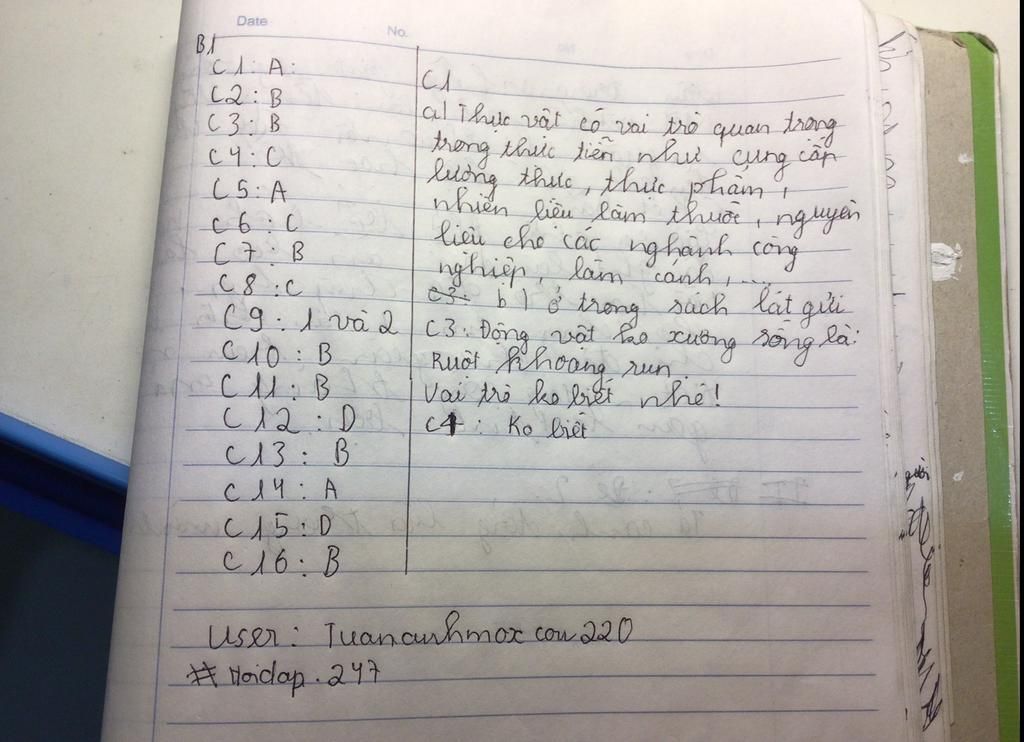 Date
No.
B1
C1: A:
C2: B
C3: B
C4: C
C5: A
C6: C
C7: B
C8: C
C9: 1 và 2
C10: B
C11: B
C12: D
C13: B
C14: A
C15: D
C16: B
C1
a) Thực vật có vai trò quan trọng
trong thực tiễn như cung cấp
lương thực, thực phẩm,
nhiên liệu làm thuốc, nguyên
liệu cho các nghành công
nghiệp, làm cảnh, ....
C3: b) ở trong sách lát gửi
C3: Động vật ko xương sống là:
Ruột khoang run.
Vai trò ko biết nhé!
C4: Ko biết
User: Tuananhmox con220
# Hoidap.247